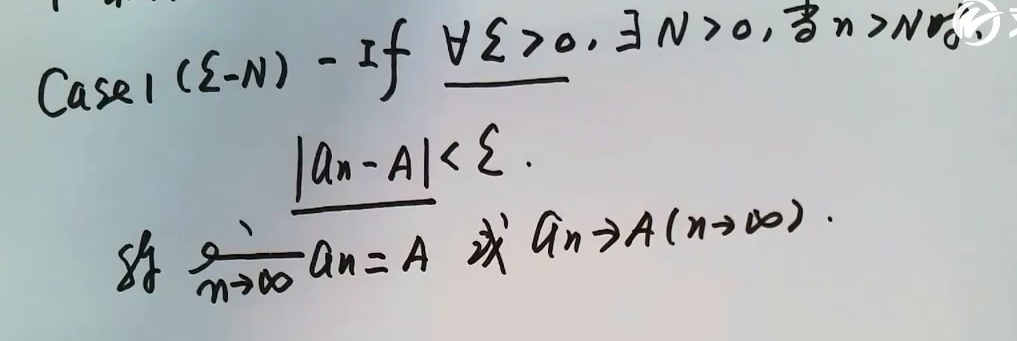 Case 1 (ε-N) - If ∀ε>0, ∃N>0, 当n>N时,
|an-A|<ε.
an=A 或 an→A(n→∞).
n→∞